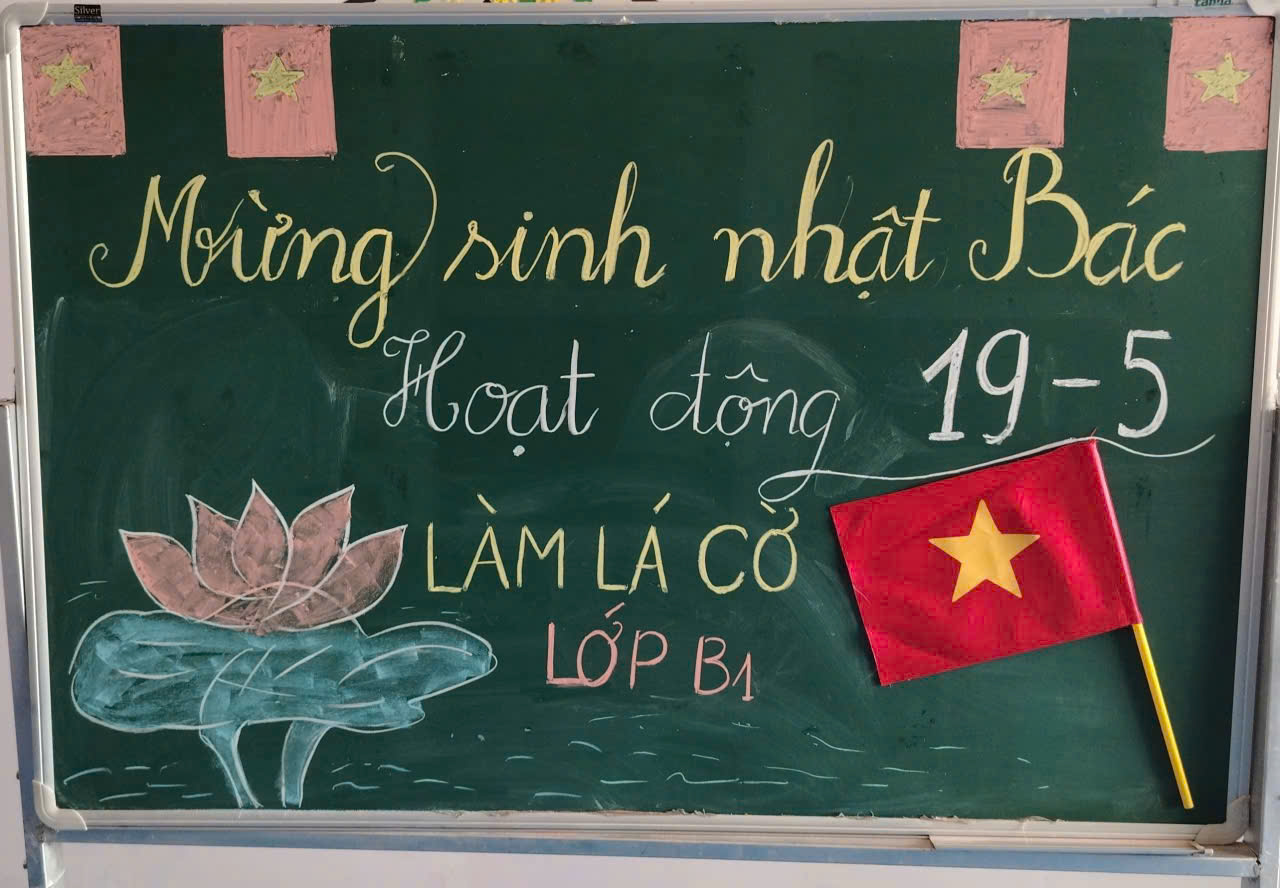 Silver
Mừng sinh nhật Bác
Hoạt động 19-5
LÀM LÁ CỜ
LỚP B1